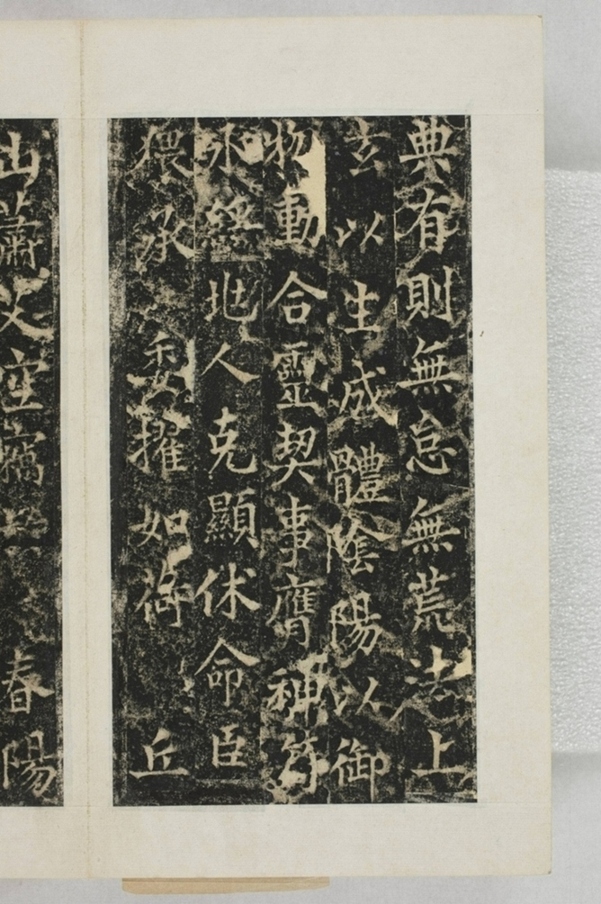 典有則無怠無荒浩上
玄以生成體陰陽以御
物動合靈契事膺神符
永終
人克顯休命臣
猥承
委擢如荷
丘
山蕭艾空
春陽